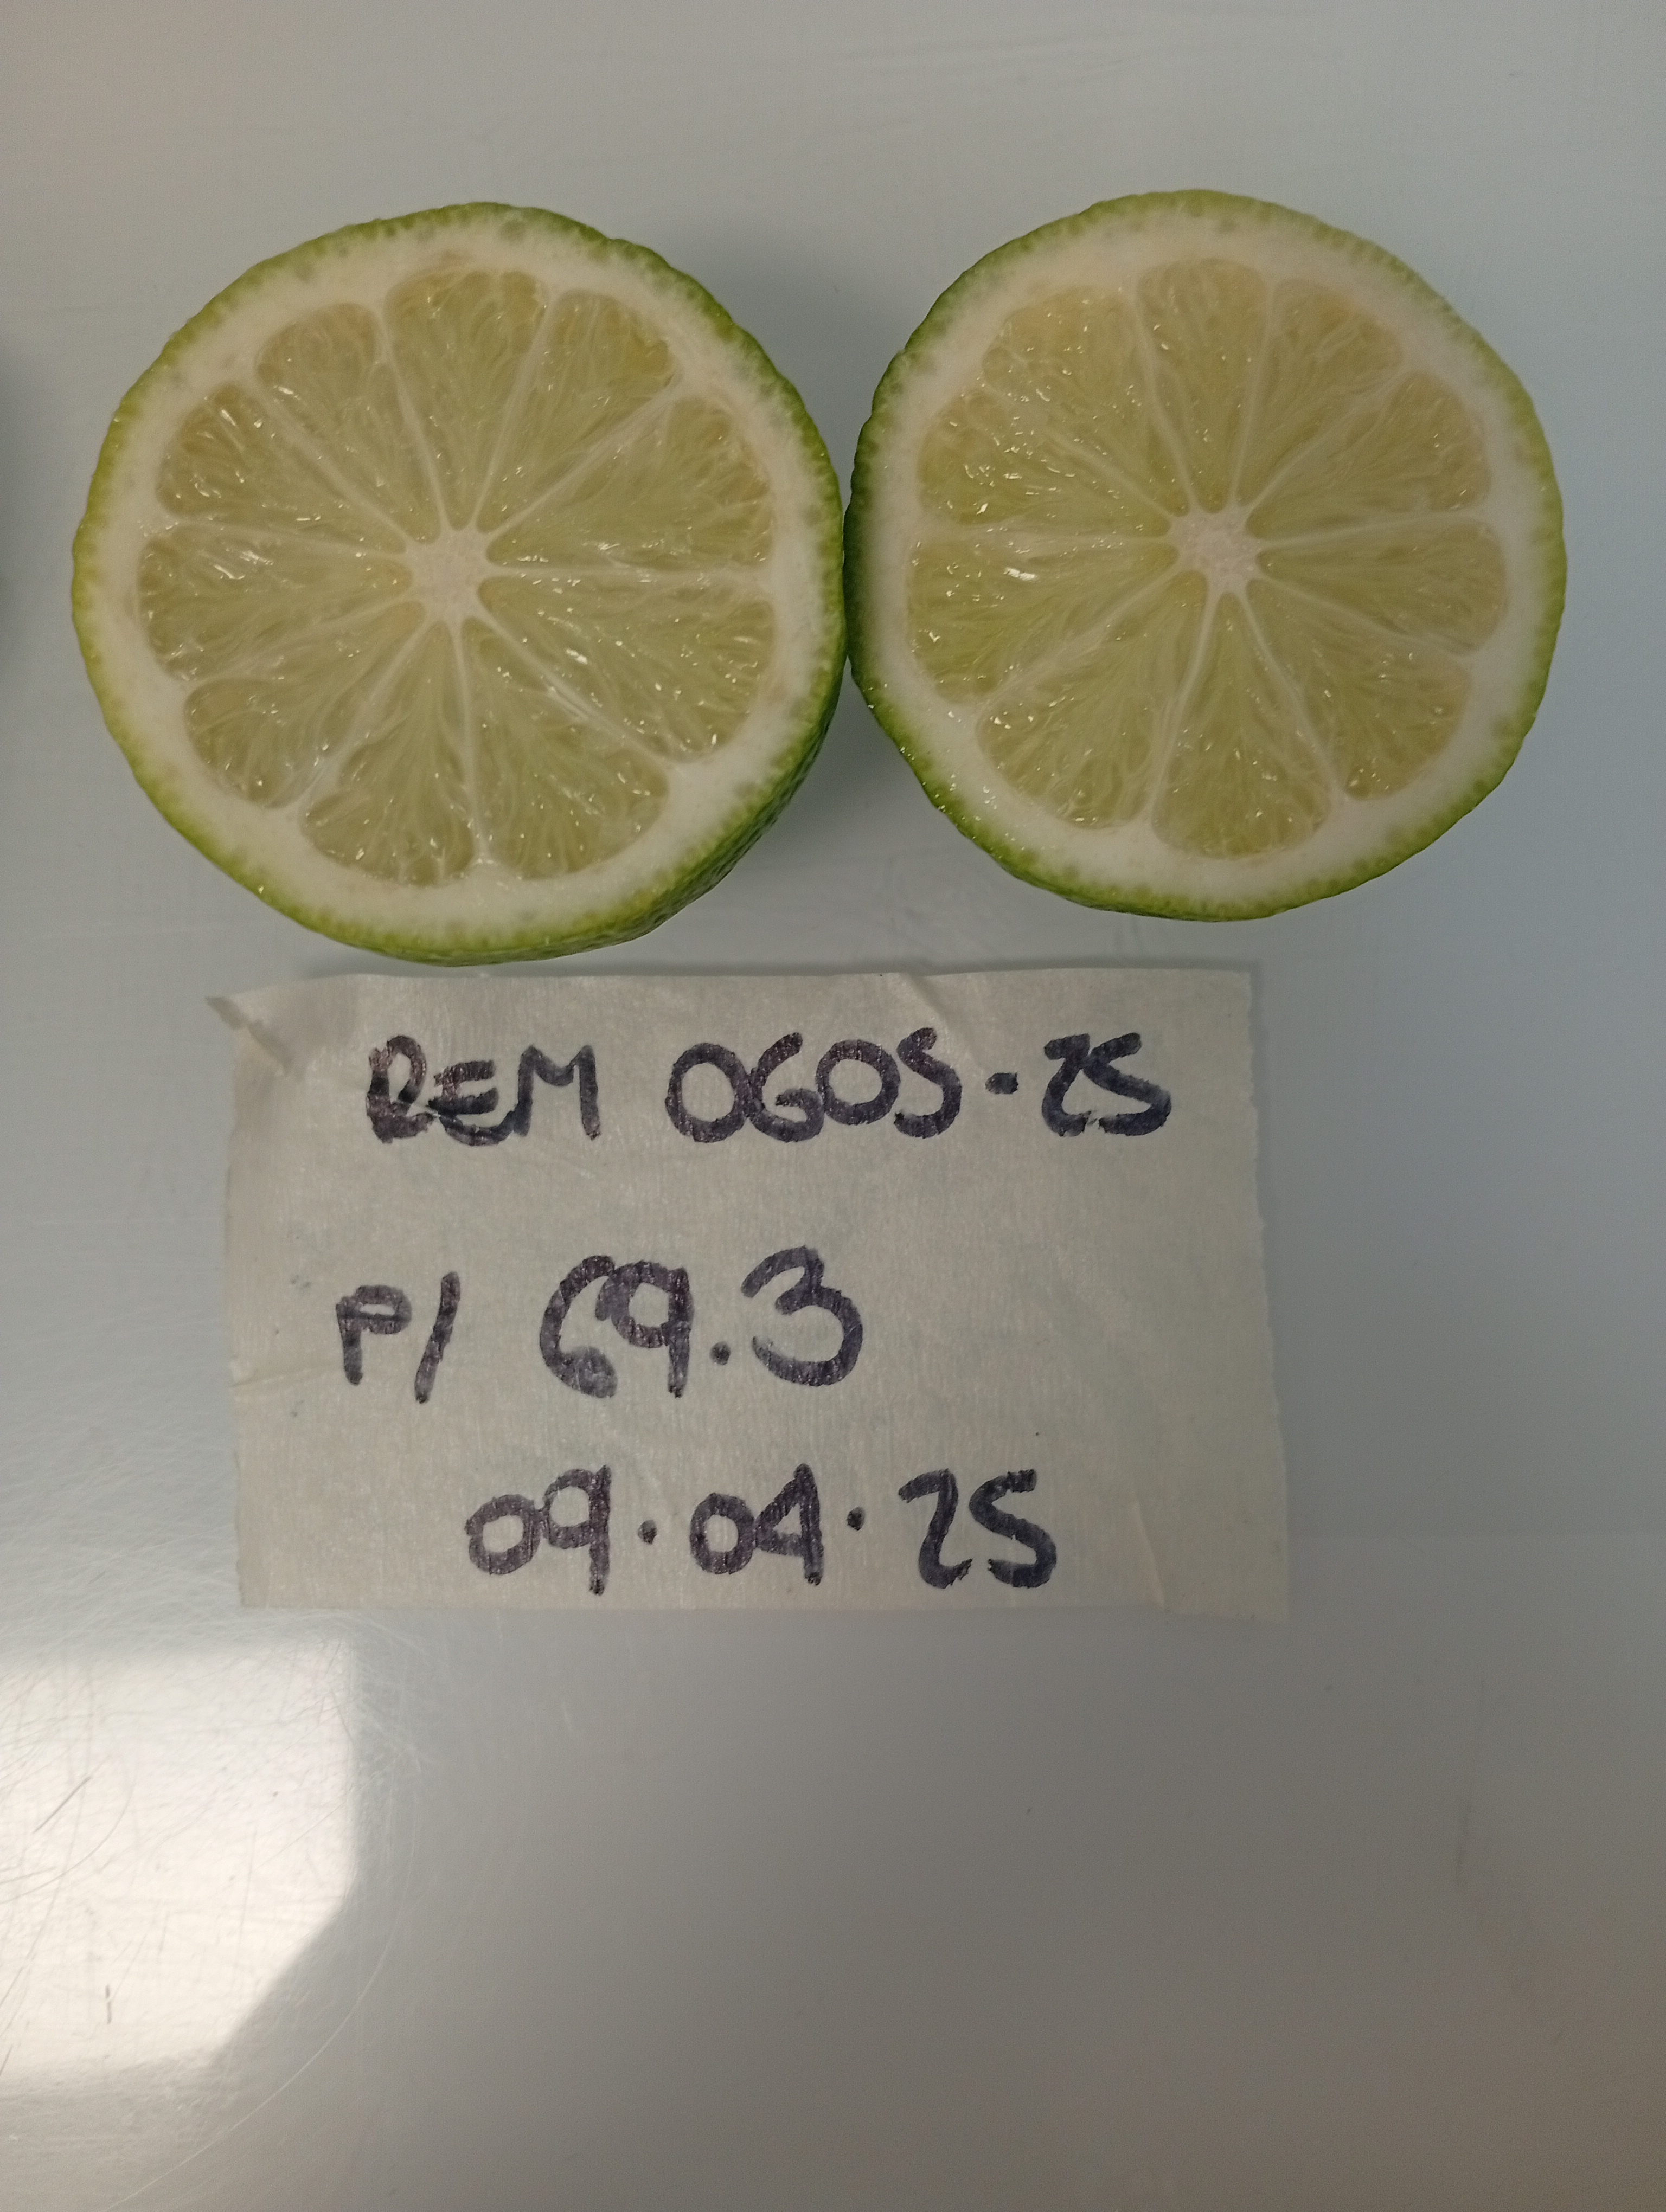 REM 0605-25
P/ 69.3
09.04.25